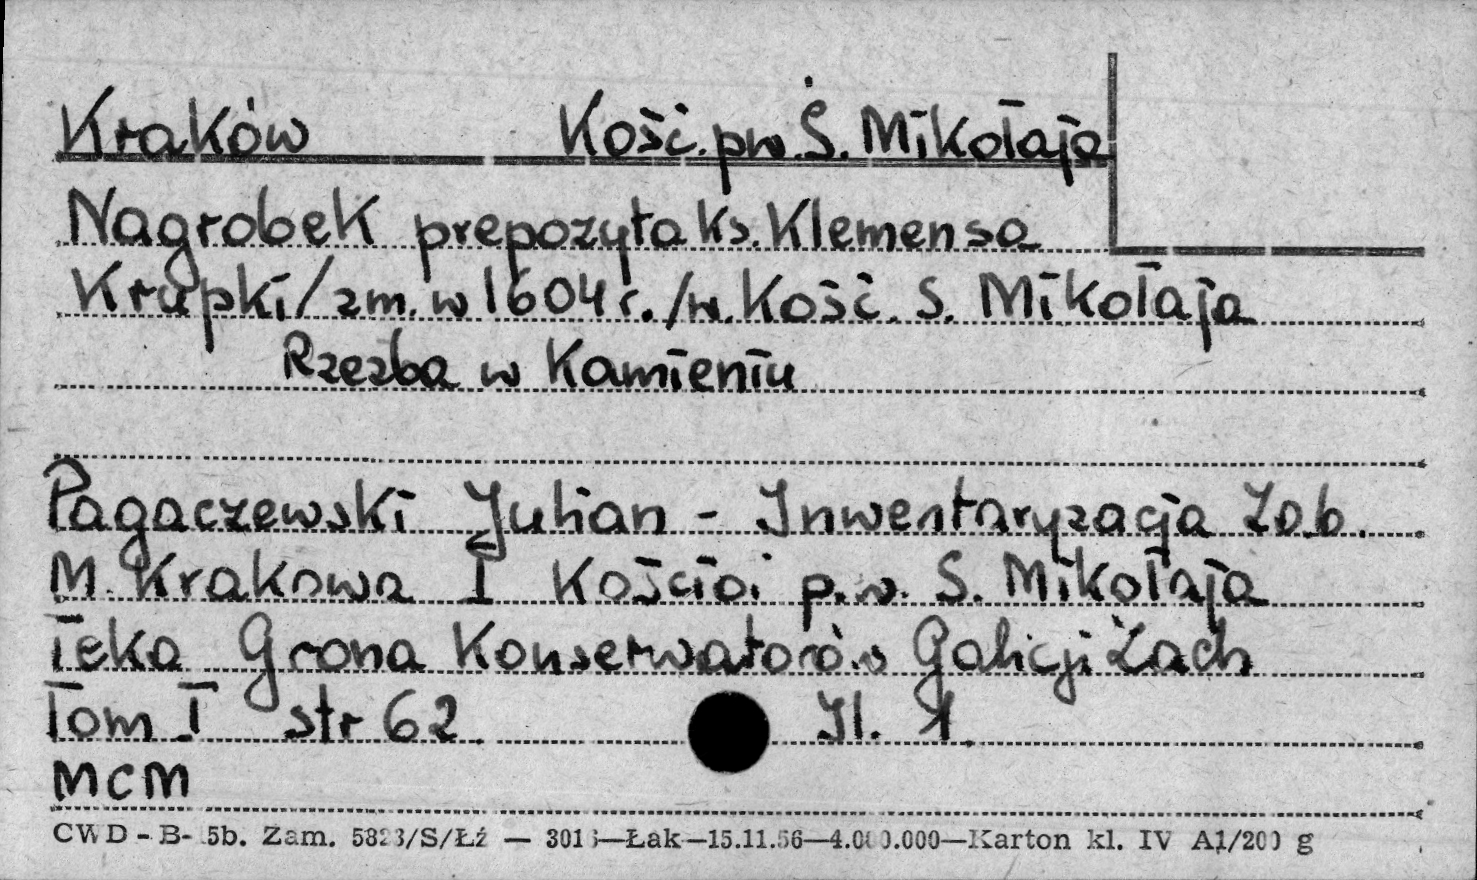 Kraków Kość. pw. Ś. Mikołaja
Nagrobek prepozyta ks. Klemensa
Krupki /zm. w 1604 r./ w. Kość. S. Mikołaja
Rzezba w Kamieniu
Pagaczewski Julian - Inwentaryzacja Zab.
M. Krakowa I Kościoi p.w. S. Mikołaja
Teka Grona Konserwatorów Galicji Zach
Tom I str 62. Il. 1.
MCM
CWD - B- 5b. Zam. 5823/S/Łź — 3016—Łak—15.11.56—4.000.000—Karton kl. IV A1/200 g